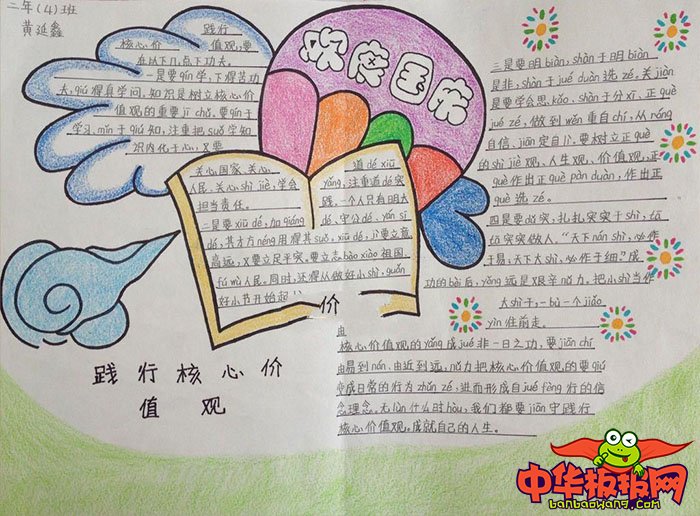 二年(4)班
黄延鑫
欢度国庆
践行
核心价值观,要
在以下几点下功夫。
一是要qín学,下得苦功
夫,qiú得真学问。知识是树立核心价
值观的重要jī chǔ。要qín于
学习、mǐn于qiú知,注重把suǒ学知
识内化于心,又要
关心国家、关心
人民、关心shì jiè,学会
担当责任。
二是要xiū dé,加qiáng
道dé xiū
yǎng,注重道dé实
践。一个人只有明大
dé、守公dé、yán sī
dé,其才方néng用得其suǒ。xiū dé,jì要立意
高远,又要立足平实。要立志bào xiào祖国、
fú wù人民。同时,还得从做好小shì,guǎn
好小节开始起
价
践行核心价
值观
三是要明biàn,shàn于明biàn
是非,shàn于jué duàn选zé。关jiàn
是要学会思kǎo、shàn于分xī、正què
jué zé,做到wěn重自chí,从róng
自信、jiān定自lì。要树立正què
的shì jiè观、人生观、价值观,正
què作出正què pàn duàn,作出正
què选zé。
四是要dǔ实,扎扎实实干shì,tā
tā实实做人。“天下nán shì,必作
于易;天下大shì,必作于细”成
功的bèi后,yǒng远是艰辛nǔ力,把小shì当作
大shì干,一bù一个jiǎo
yìn往前走。
由
核心价值观的yǎng成jué非一日之功,要jiān chí
由易到nán、由近到远,nǔ力把核心价值观的要qiú
变成日常的行为zhǔn zé,进而形成自jué fèng行的信
念理念。无lùn什么时hòu,我们都要jiān守践行
核心价值观。成就自己的人生。
中华板报网
banbaowang.com